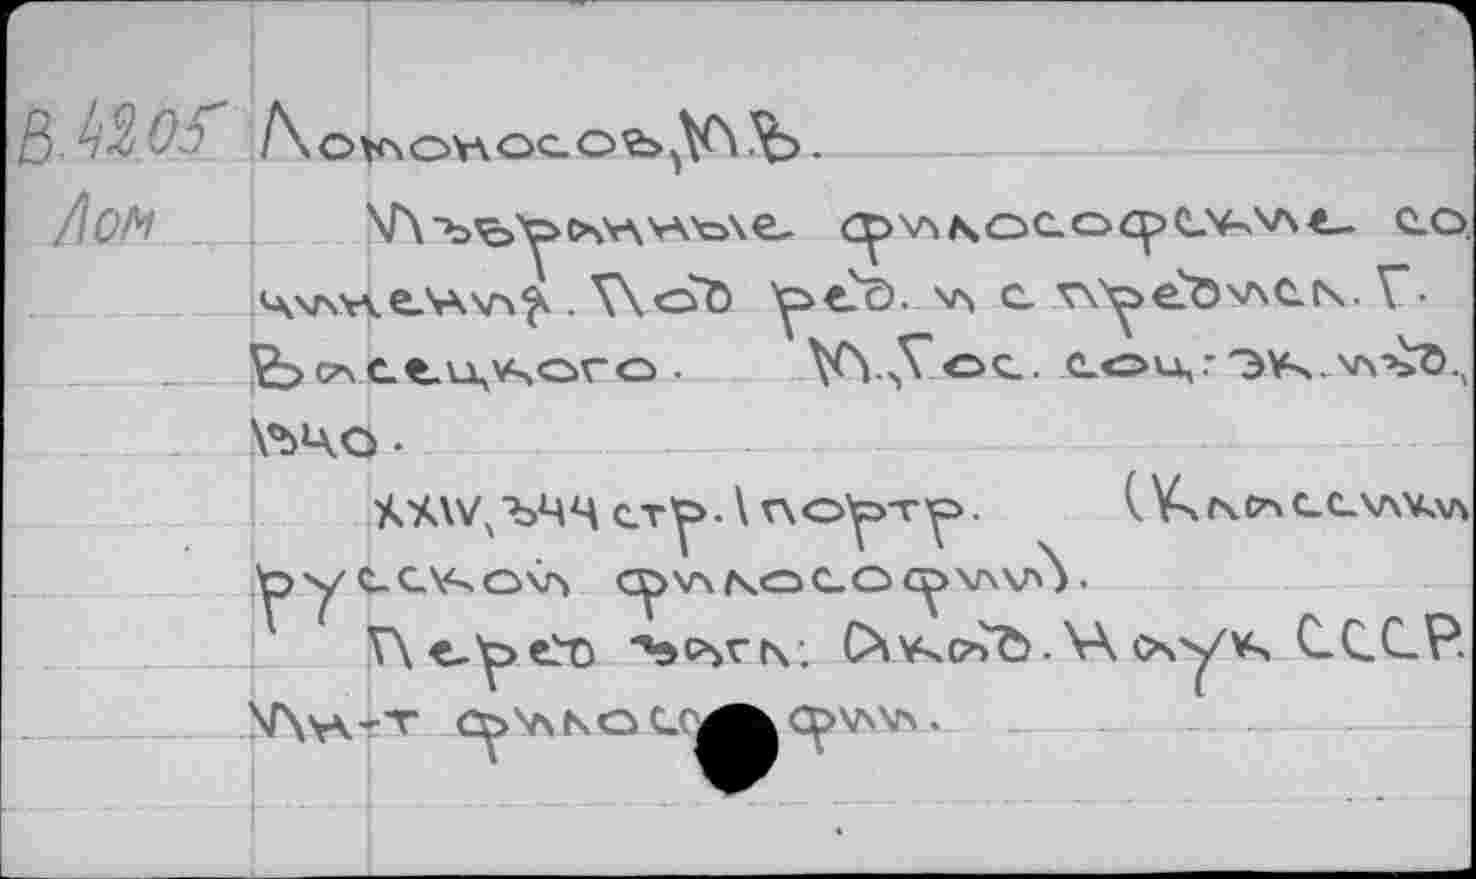 В.4205 Ломоносов, М.В.
Лом Избранные философские со
чинения. Под ред. и с предисл. Г.
Васецкого. М., Гос. соц.-эк. изд.,
1940.
XXIV, 344 стр. 1 портр. (Классики
русской философии).
Перед загл: Акад. Наук СССР.
Ин-т философии.